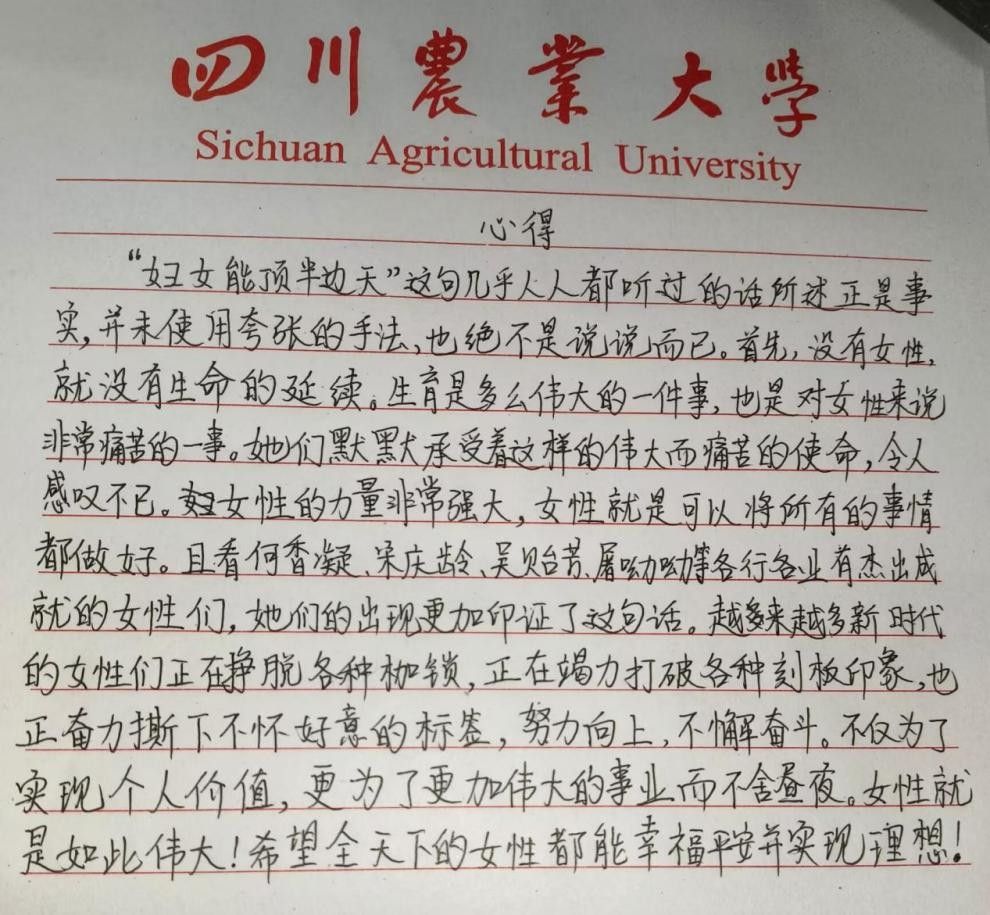 四川農業大学
Sichuan Agricultural University
心得
“妇女能顶半边天”这句几乎人人都听过的话所述正是事
实,并未使用夸张的手法,也绝不是说说而已。首先,没有女性,
就没有生命的延续。生育是多么伟大的一件事,也是对女性来说
非常痛苦的一事。她们默默承受着这样的伟大而痛苦的使命,令人
感叹不已。女性的力量非常强大,女性就是可以将所有的事情
都做好。且看何香凝、宋庆龄、吴贻芳、屠呦呦等各行各业有杰出成
就的女性们,她们的出现更加印证了这句话。越来越多新时代
的女性们正在挣脱各种枷锁,正在竭力打破各种刻板印象,也
正奋力撕下不怀好意的标签,努力向上,不懈奋斗。不仅为了
实现个人价值,更为了更加伟大的事业而不舍昼夜。女性就
是如此伟大!希望全天下的女性都能幸福平安并实现理想!